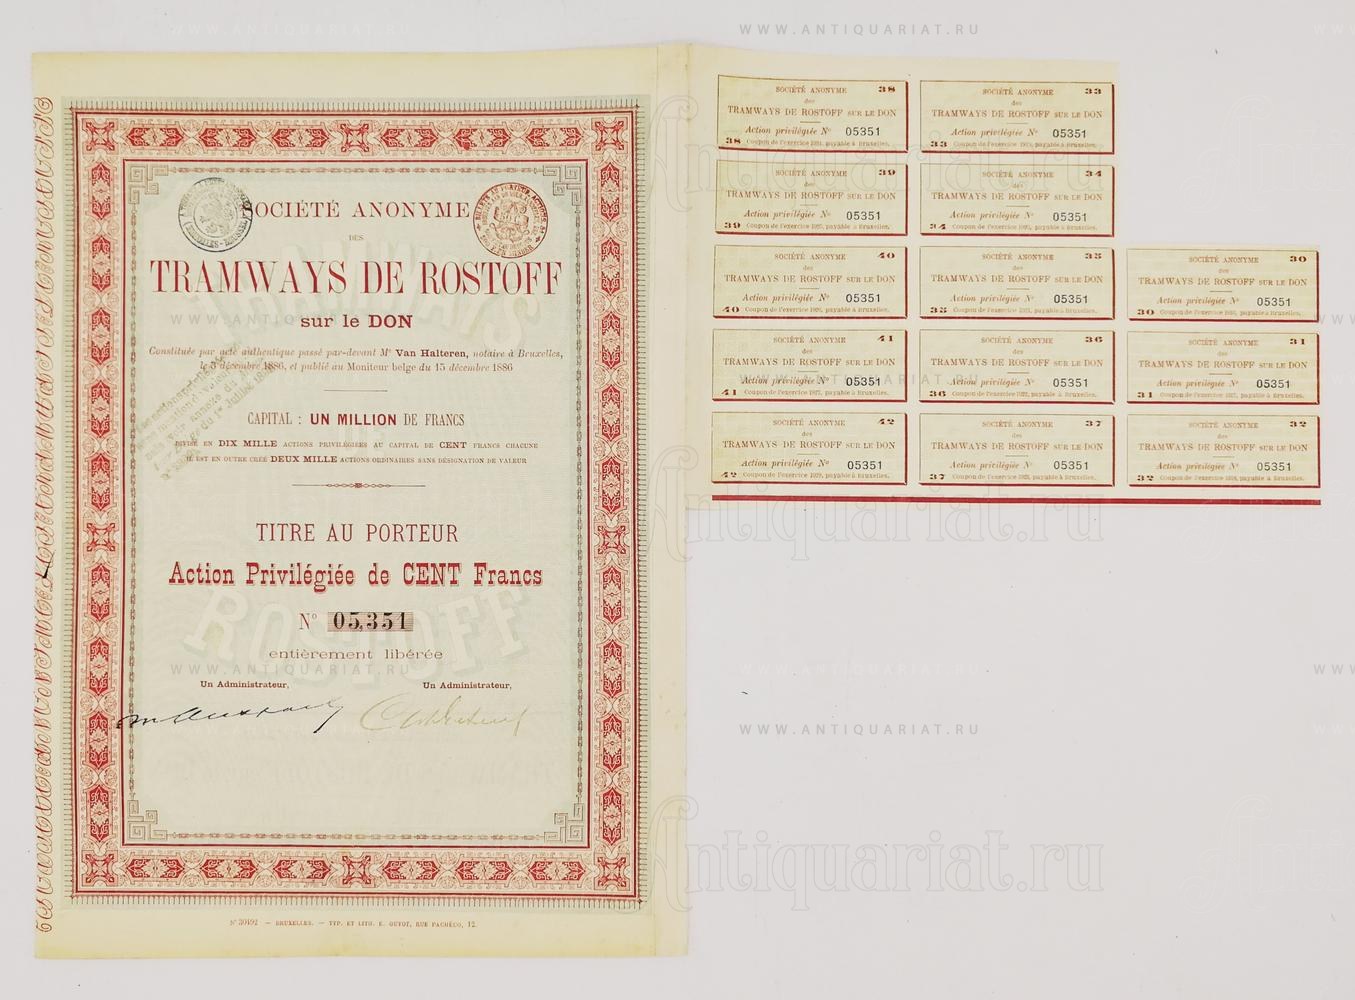 SOCIÉTÉ ANONYME
DES
TRAMWAYS DE ROSTOFF
sur le DON
Constituée par acte authentique passé par-devant Mᵉ Van Halteren, notaire à Bruxelles,
le 3 décembre 1886, et publié au Moniteur belge du 15 décembre 1886
CAPITAL : UN MILLION DE FRANCS
DIVISÉ EN DIX MILLE ACTIONS PRIVILÉGIÉES AU CAPITAL DE CENT FRANCS CHACUNE
IL EST EN OUTRE CRÉÉ DEUX MILLE ACTIONS ORDINAIRES SANS DÉSIGNATION DE VALEUR
TITRE AU PORTEUR
Action Privilégiée de CENT Francs
N° 05,351
ROSTOFF
entièrement libérée
Un Administrateur, Un Administrateur,
N° 30492 — BRUXELLES. — TYP. ET LITH. E. GUYOT, RUE PACHÉCO, 12.
SOCIÉTÉ ANONYME 38
des
TRAMWAYS DE ROSTOFF SUR LE DON
Action privilégiée N° 05351
38 Coupon de l'exercice 1924, payable à Bruxelles.
SOCIÉTÉ ANONYME 39
des
TRAMWAYS DE ROSTOFF SUR LE DON
Action privilégiée N° 05351
39 Coupon de l'exercice 1925, payable à Bruxelles.
SOCIÉTÉ ANONYME 40
des
TRAMWAYS DE ROSTOFF SUR LE DON
Action privilégiée N° 05351
40 Coupon de l'exercice 1926, payable à Bruxelles.
SOCIÉTÉ ANONYME 41
des
TRAMWAYS DE ROSTOFF SUR LE DON
Action privilégiée N° 05351
41 Coupon de l'exercice 1927, payable à Bruxelles.
SOCIÉTÉ ANONYME 42
des
TRAMWAYS DE ROSTOFF SUR LE DON
Action privilégiée N° 05351
42 Coupon de l'exercice payable à Bruxelles.
SOCIÉTÉ ANONYME 33
des
TRAMWAYS DE ROSTOFF SUR LE DON
Action privilégiée N° 05351
33 Coupon de l'exercice payable à Bruxelles.
SOCIÉTÉ ANONYME 34
des
TRAMWAYS DE ROSTOFF SUR LE DON
Action privilégiée N° 05351
34 Coupon de l'exercice payable à Bruxelles.
SOCIÉTÉ ANONYME 35
des
TRAMWAYS DE ROSTOFF SUR LE DON
Action privilégiée N° 05351
35 Coupon de l'exercice 1921, payable à Bruxelles.
SOCIÉTÉ ANONYME 36
des
TRAMWAYS DE ROSTOFF SUR LE DON
Action privilégiée N° 05351
36 Coupon de l'exercice 1922, payable à Bruxelles.
SOCIÉTÉ ANONYME 37
des
TRAMWAYS DE ROSTOFF SUR LE DON
Action privilégiée N° 05351
37 Coupon de l'exercice 1923, payable à Bruxelles.
SOCIÉTÉ ANONYME 30
des
TRAMWAYS DE ROSTOFF SUR LE DON
Action privilégiée N° 05351
30 Coupon de l'exercice payable à Bruxelles.
SOCIÉTÉ ANONYME 31
des
TRAMWAYS DE ROSTOFF SUR LE DON
Action privilégiée N° 05351
31 Coupon de l'exercice payable à Bruxelles.
SOCIÉTÉ ANONYME 32
des
TRAMWAYS DE ROSTOFF SUR LE DON
Action privilégiée N° 05351
32 Coupon de l'exercice payable à Bruxelles.
WWW.ANTIQUARIAT.RU
Antiquariat.ru